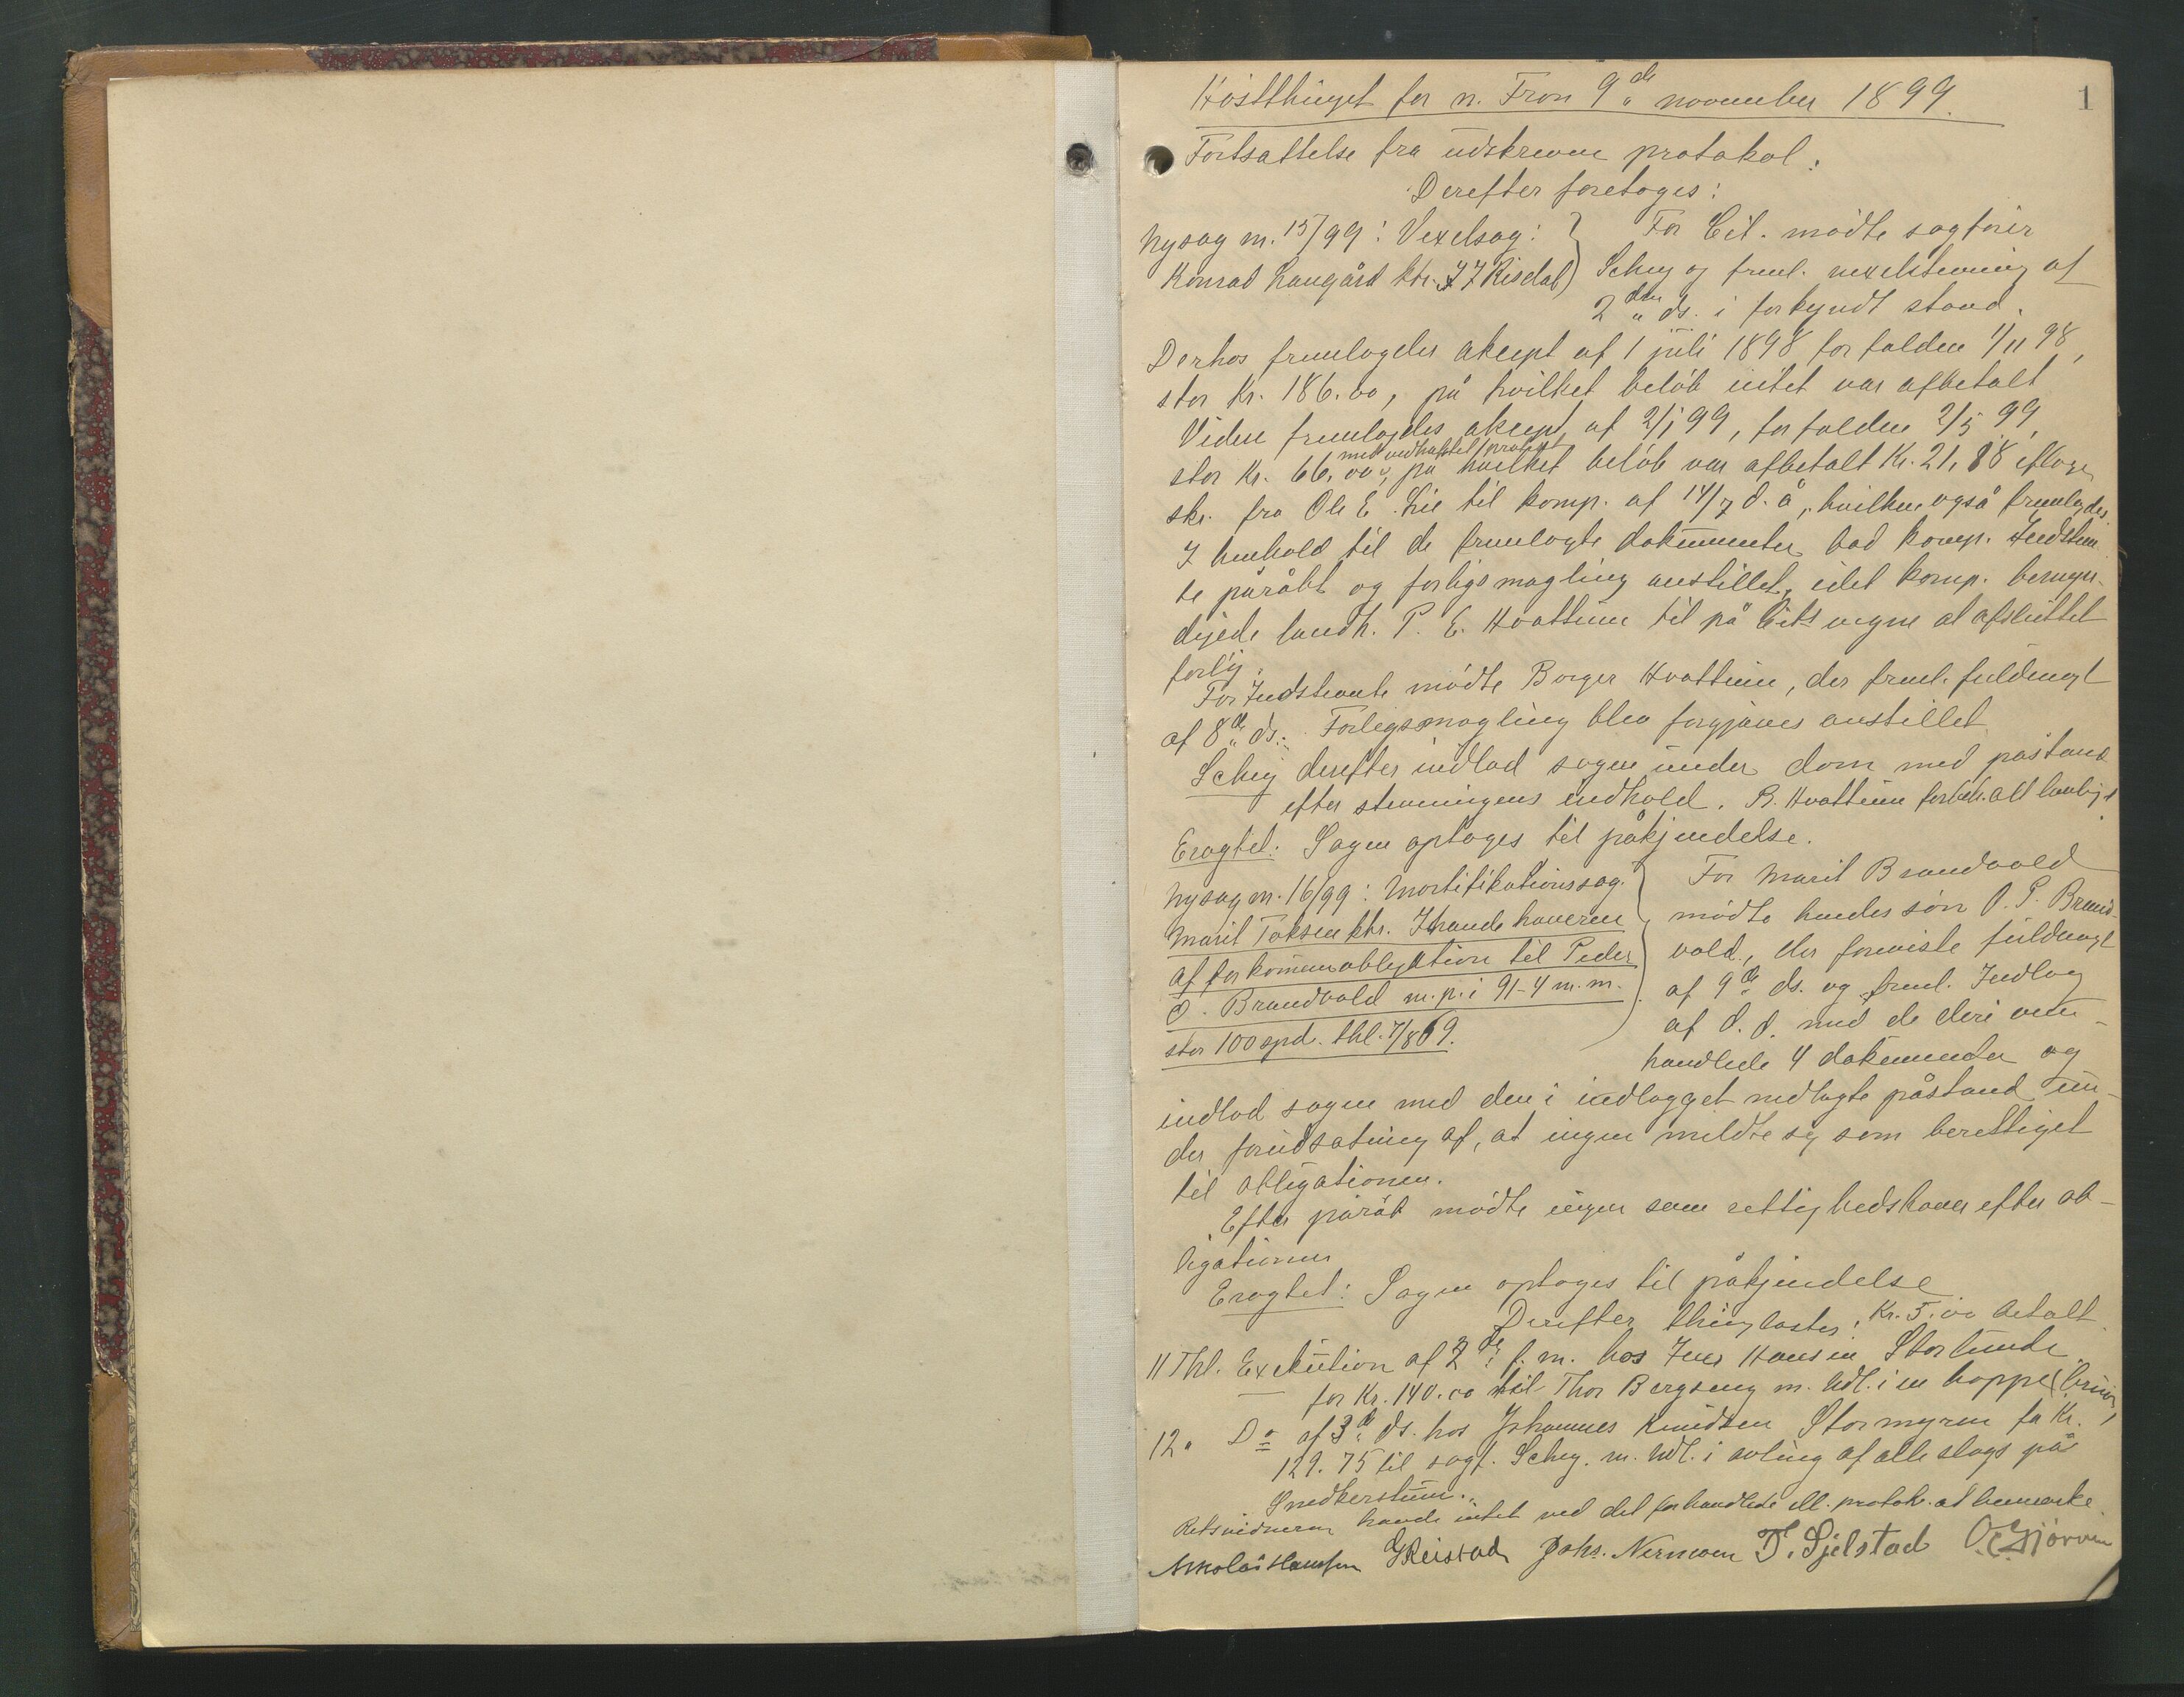 1
Høstthinget for n. Fron 9de november 1899.
Fortsættelse fra udskreven protokol:
Derefter foretoges:
Ny sag nr. 15/99: Vexelsag:
Konrad Haugård ktr. J J Risdal
For Cit. mødte sagfører
Schey og freml. vexelstevning af
2den ds. i forkyndt stand.
Derhos fremlagdes akcept af 1 juli 1898 forfalden 1/11 98,
stor Kr. 186.00, på hvilket beløb intet var afbetalt
Videre fremlagdes akcept af 2/1 99, forfalden 2/5 99,
med vedhæftet protest
stor Kr. 66.00, på hvilket beløb var afbetalt Kr. 21,88 ifløge
skr. fra Ole E. Lie til komp. af 14/7 d. å., hvilken også fremlagdes.
I henhold til de fremlagte dokumenter bad komp. Indstevn
te påråbt og forligsmægling anstillet, idet komp. bemyn-
digede landh. P. E. Hvattum til på Cits vegne at afsluttet
forlig.
For Indstevnte mødte Borger Hvattum, der freml. fuldmagt
af 8de ds. Forligsmægling blev forgjæves anstillet
Schey derefter indlod sagen under dom med påstand
efter stevningens indhold. B. Hvattum forbeh. alt lovligt.
Eragtet: Sagen optoges til påkjendelse.
Ny sag nr. 16/99: Mortifikationssag.
Marit Toksen ktr. Ihændehaveren
af forkommen obligation til Peder
O. Brandvold m. p. i 91-4 m. m.
stor 100 spd. thl. 7/8 69.
For Marit Brandvold
mødte hendes søn O. P. Brand-
vold, der foreviste fuldmagt
af 9de ds. og freml. Indlæg
af d. d. med de deri om-
handlede 4 dokumenter og
indlod sagen med den i indlægget nedlagte påstand un-
der forudsætning af, at ingen meldte sig som berettiget
til obligationen.
Efter påråb mødte ingen som rettighedshaver efter ob-
ligationen
Eragtet: Sagen optoges til påkjendelse
Derefter thinglæstes: Kr. 5.00 betalt.
11 Thl. Exekution af 2de f. m. hos Iver Hansen Storlunde
for Kr. 140.00 til Thor Bergseng m. Udl. i en hoppe (brun)
12 " Do af 3de ds. hos Johannes Knudsen Stormyren for Kr.
129.75 til sagf. Schey. m. Udl. i avling af alle slags på
Snedkerstuen.
Retsvidnerne havde intet ved det forhandlede ell. protok. at bemærke.
Nikolai Hansen G Reistad Johs. Nermoen T. Sjelstad O. Gjörven